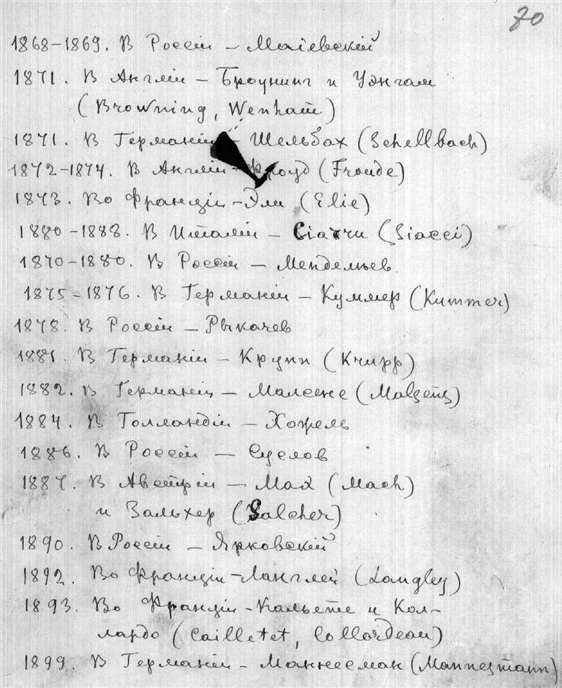 70
1868-1869. В Россіи – Маіевскій
1871. В Англіи – Броунинг и Уэнгам
(Browning, Wenham)
1871. В Германіи – Шельбах (Schellbach)
1872-1874. В Англіи – Фроуд (Froude)
1873. Во Франціи – Эли (Elie)
1880-1888. В Италіи – Сіаччи (Siacci)
1870-1880. В Россіи – Менделѣев
1875-1876. В Германіи – Куммер (Kummer)
1878. В Россіи – Рыкачев
1881. В Германіи – Крупп (Krupp)
1882. В Германіи –
1884. В Голландіи –
1886. В Россіи – Суслов
1887. В Австріи – Мах (Mach)
и Зальхер (Salcher)
1890. В Россіи – Ярковскій
1892. Во Франціи – Ланглей (Langley)
1893. Во Франціи – Кальете и Кол-
лардо (Cailletet, Collardeau)
1899. В Германіи – Маннесман (Mannesmann)